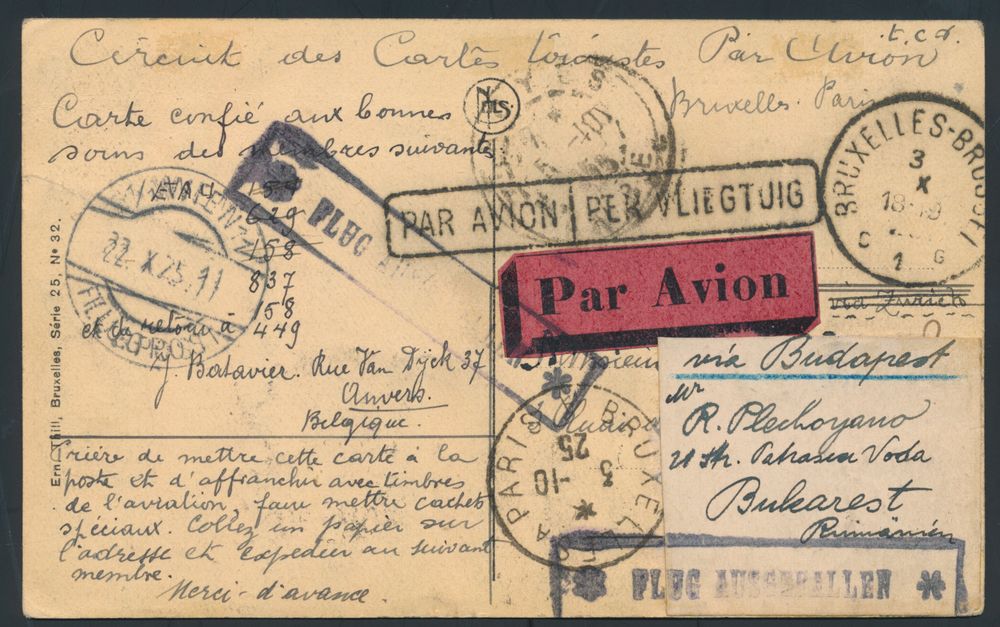 t.c.d.
Circuit des Cartes Par l'Avion
Bruxelles Paris
Carte confié aux bonnes
soins des membres suivants:
154
629
158
837
158
et de retour à 449
J. Batavier. Rue Van Dyck 37
Anvers.
Belgique.
Prière de mettre cette carte à la
poste et d'affranchir avec timbres
de l'aviation, faire mettre cachets
spéciaux. Collez un papier sur
l'adresse et expedier au suivant
membre.
Merci-d'avance.
Ern. Thill, Bruxelles, Série 25, No 32.
22.X.25.11
FLUG AUS
PAR AVION PER VLIEGTUIG
BRUXELLES-BRUSSEL
3
X
18-19
C 1 G
Par Avion
via Zurich
Monsieur
BRUXELLES A PARIS
3 -10
25
via Budapest
Mr
R. Plechoyano
21 Str. Voda
Bukarest
Rumänien
FLUG AUSGEFALLEN